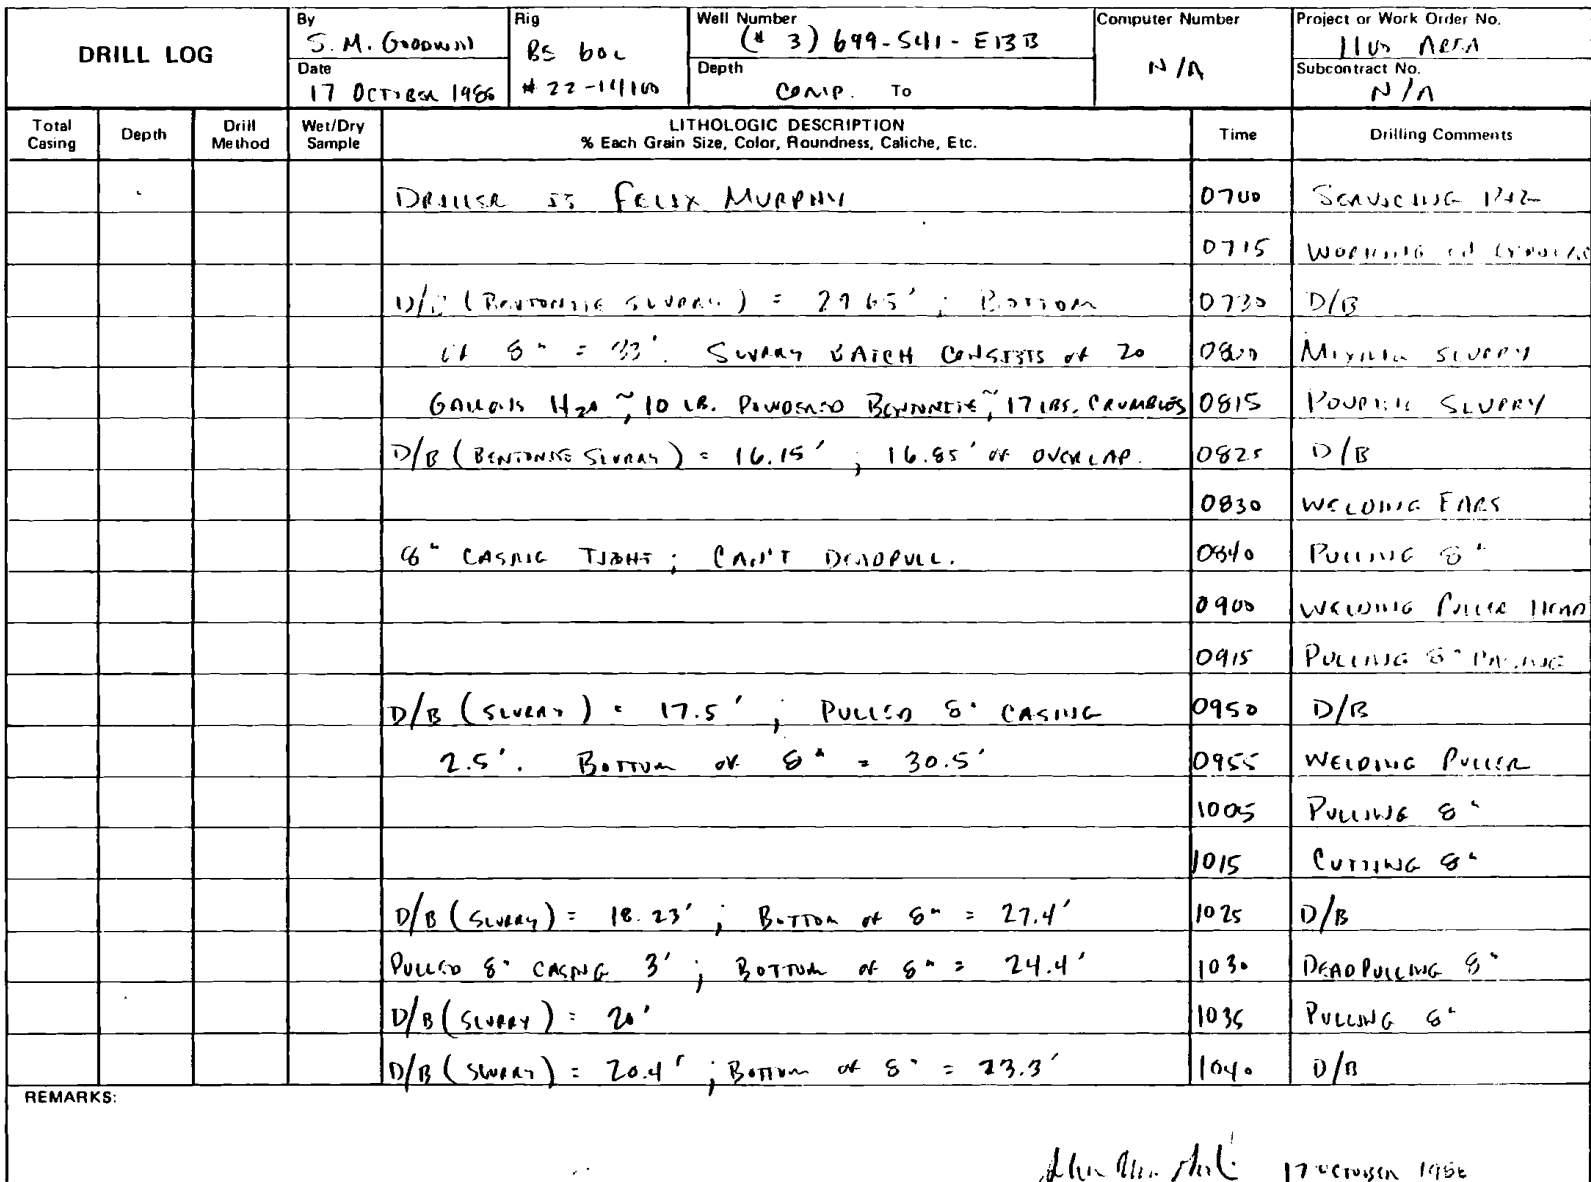 DRILL LOG
By
S. M. GOODWIN
Date
17 OCTOBER 1986
Rig
BE 60L
# 22-14100
Well Number
(# 3) 699-S41-E13B
Depth
COMP. To
Computer Number
N/A
Project or Work Order No.
1100 AREA
Subcontract No.
N/A
Total Casing
Depth
Drill Method
Wet/Dry Sample
LITHOLOGIC DESCRIPTION
% Each Grain Size, Color, Roundness, Caliche, Etc.
Time
Drilling Comments
DRILLER IS FELIX MURPHY 0700 SERVICING
0715 WORKING
D/B (BENTONITE SLURRY) = 27.65' ; BOTTOM 0730 D/B
OF 8" = 33'. SLURRY BATCH CONSISTS OF 20 0800 MIXING SLURRY
GALLONS H2O ~ 10 LB. POWDERED BENTONITE, ~ 17 LBS. CRUMBLES 0815 POURING SLURRY
D/B (BENTONITE SLURRY) = 16.15' ; 16.85' OF OVERLAP. 0825 D/B
0830 WELDING EARS
8" CASING TIGHT ; CAN'T DEADPULL. 0840 PULLING 8"
0900 WELDING PULLER HEAD
0915 PULLING 8" CASING
D/B (SLURRY) = 17.5' ; PULLED 8" CASING 0950 D/B
2.5'. BOTTOM OF 8" = 30.5' 0955 WELDING PULLER
1005 PULLING 8"
1015 CUTTING 8"
D/B (SLURRY) = 18.23' ; BOTTOM OF 8" = 27.4' 1025 D/B
PULLED 8" CASING 3' ; BOTTOM OF 8" = 24.4' 1030 DEADPULLING 8"
D/B (SLURRY) = 20' 1035 PULLING 8"
D/B (SLURRY) = 20.4' ; BOTTOM OF 8" = 23.3' 1040 D/B
REMARKS:
17 OCTOBER 1986